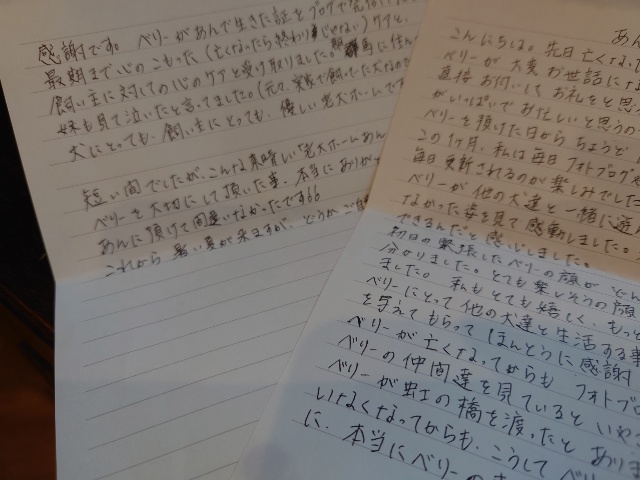 感謝です。ベリーがあんで生きた証をブログで
最期まで心のこもった(亡くなったら終わりじゃない)ケアと、
飼い主に対しての心のケアを受け取りました。
妹も見て泣いたと言ってました。(元々、実家で飼ってた犬なので
犬にとっても、飼い主にとっても、優しい老犬ホームです
短い間でしたが、こんな素晴しい「老犬ホームあん
ベリーを大切にして頂いた事、本当にありが
あんに預けて間違いなかったです
これから暑い夏が来ますが、どうかご自
あん
こんにちは。先日亡くな
ベリーが大変お世話にな
直接お伺いしてお礼をと思う
がいっぱいでお忙しいと思うの
ベリーを預けた日からちょうど
この1ヶ月、私は毎日フォトブログ
毎日更新されるのが楽しみでした
ベリーが他の犬達と一緒に遊
なかった姿を見て感動しました。
できるんだと感心しました。
初日の緊張したベリーの顔が
分かりました。とても楽しそうな顔
ました。私もとても嬉しく、もっと
ベリーにとって他の犬達と生活する事
を与えてもらってほんとうに感謝
ベリーが亡くなってからもフォトブロ
ベリーの仲間達を見ていると
ベリーが虹の橋を渡ったと
いなくなってからも、こうしてベリ
に、本当にベリーの